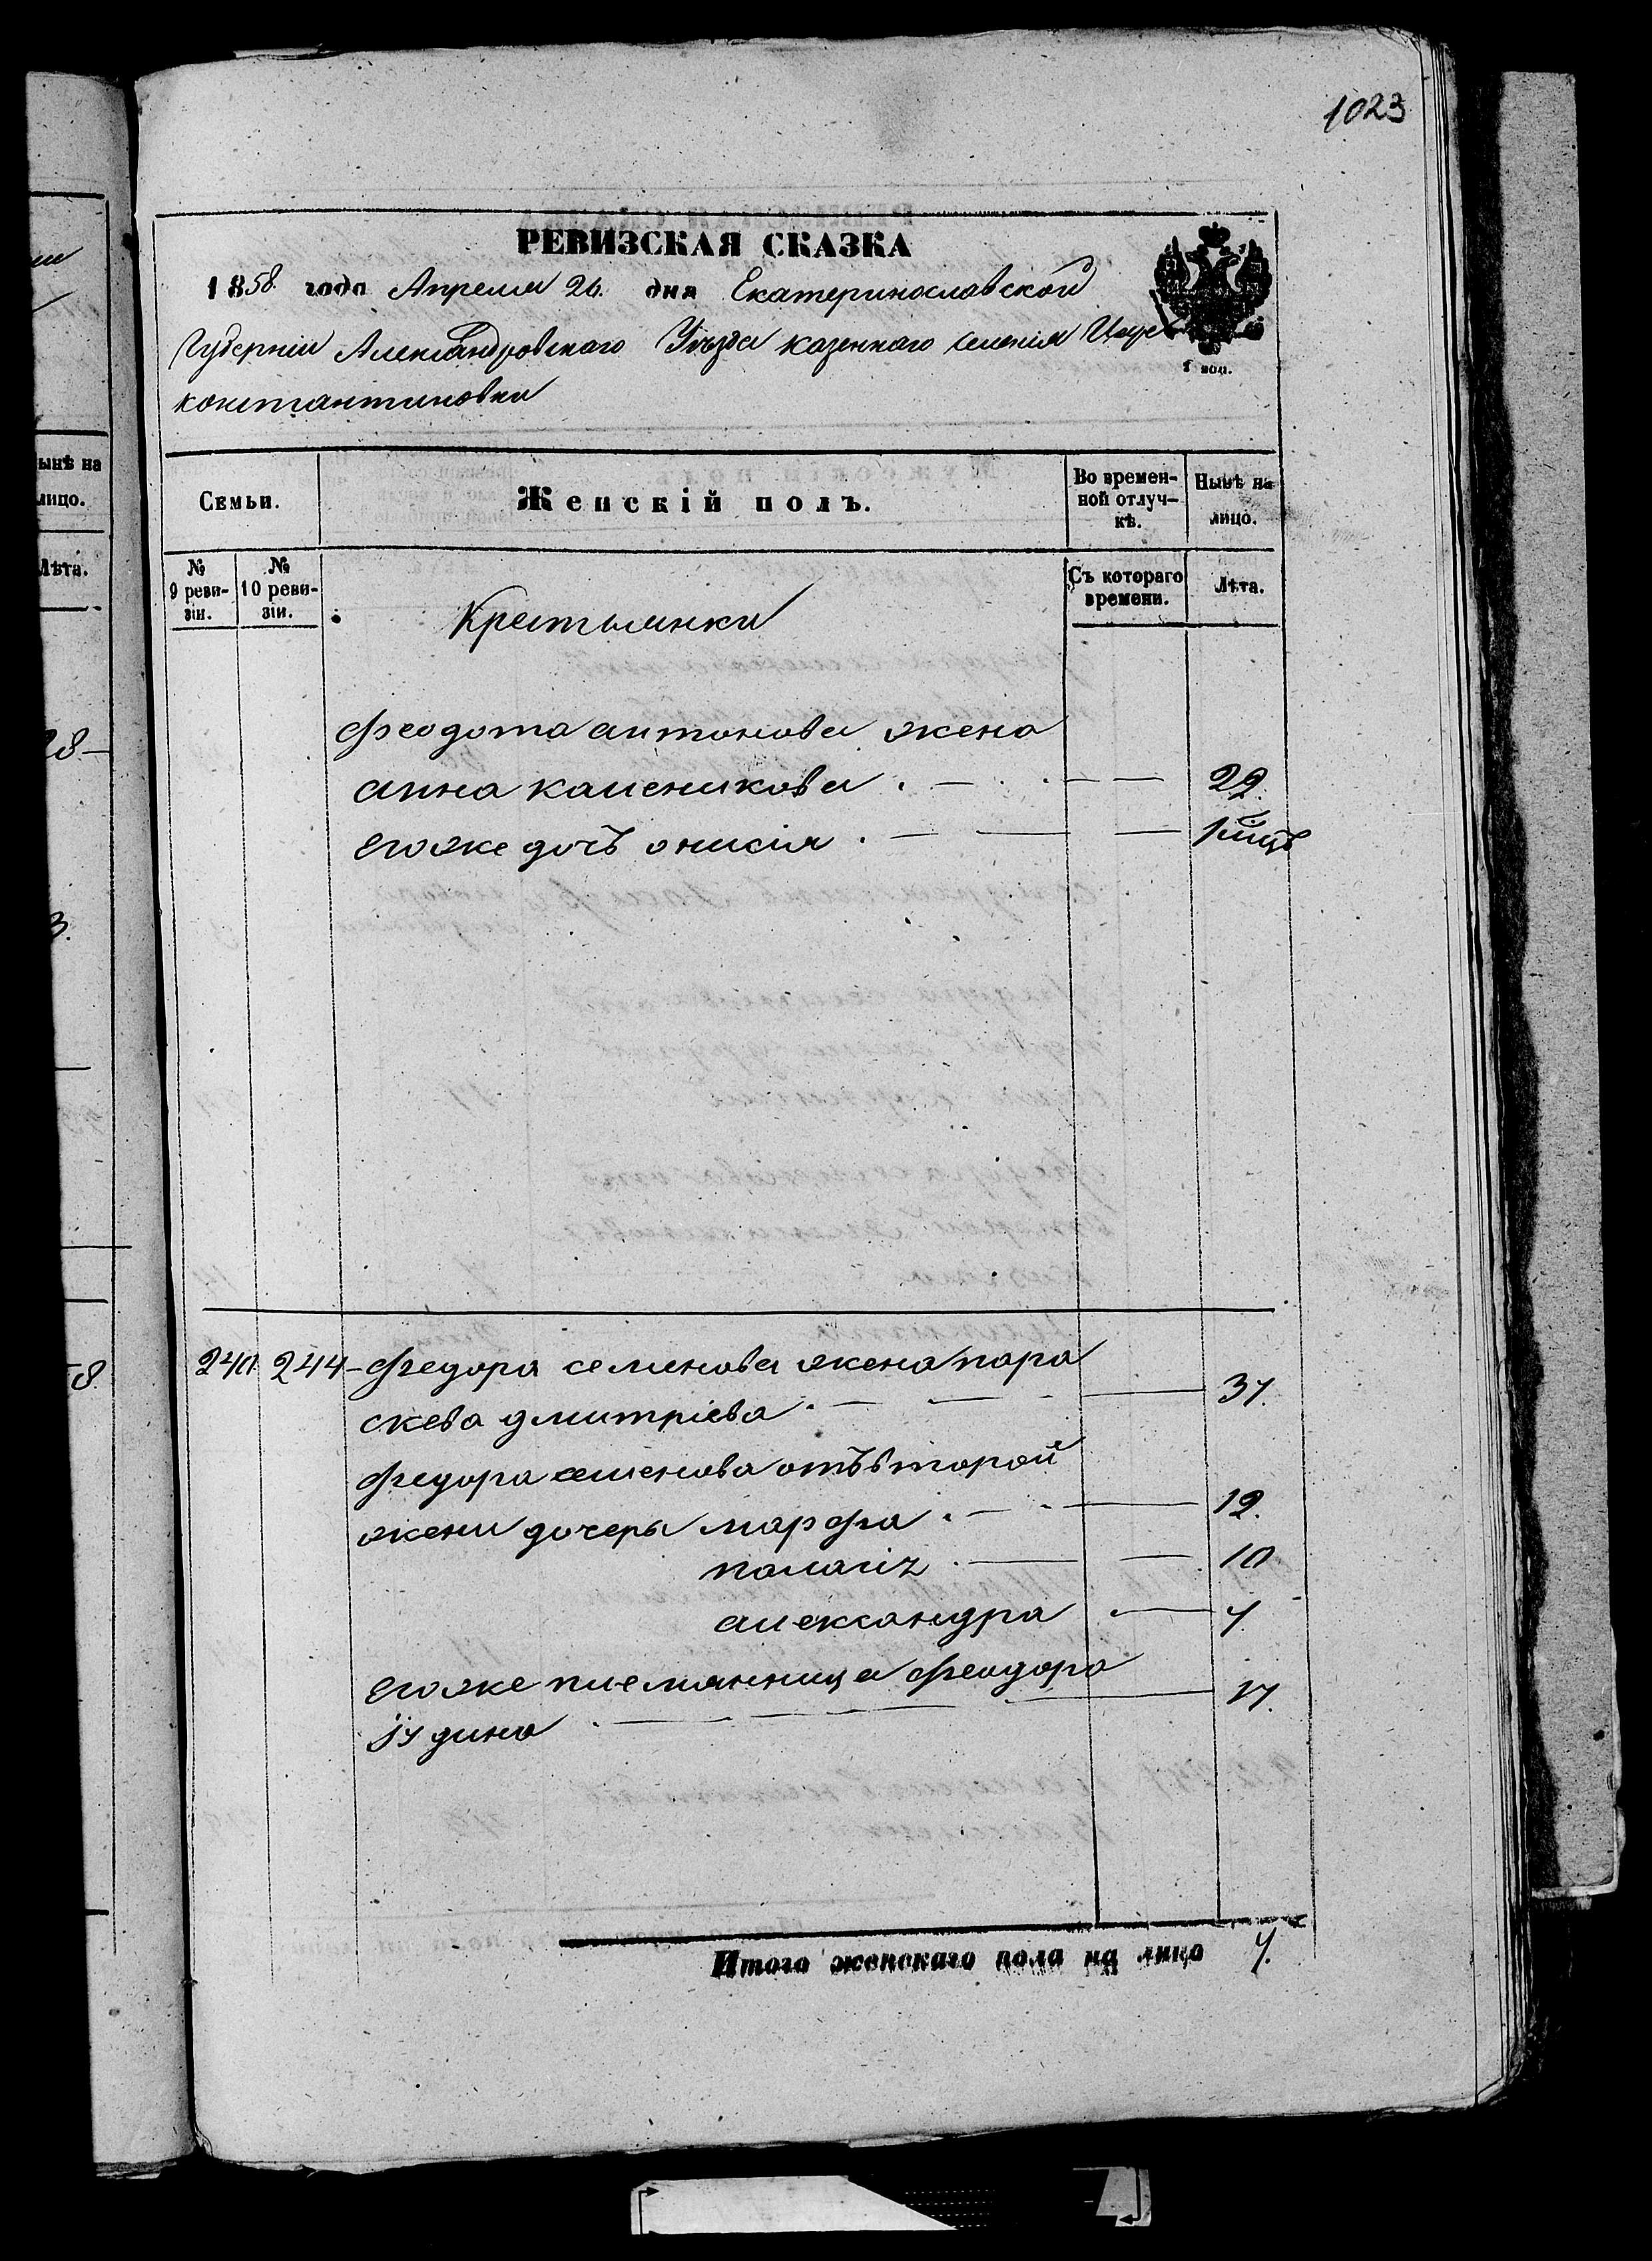 1023
РЕВИЗСКАЯ СКАЗКА
1858. года Апреля 26. дня Екатеринославской
Губерніи Александровскаго Уѣзда казеннаго селенія Царе
константиновки
1 коп.
ынѣ на
лицо.
Лѣта.
Семьи.
Женскій полъ.
Во времен-
ной отлуч-
кѣ.
Нынѣ на
лицо.
№
9 реви-
зіи.
№
10 реви-
зіи.
Съ котораго
времени.
Лѣта.
Крестьянки
Феодота антонова жена
анна калешкова 29.
егоже дочъ онисія 1 мѣцъ
240 244 Федора семенова жена пара
скева дмитріева 37.
Федора семенова отъ второй
жени дочеры марфа 12.
палагія 10
александра 7
егоже племянница феодора
іудина 17.
Итого женскаго пола на лицо 7.